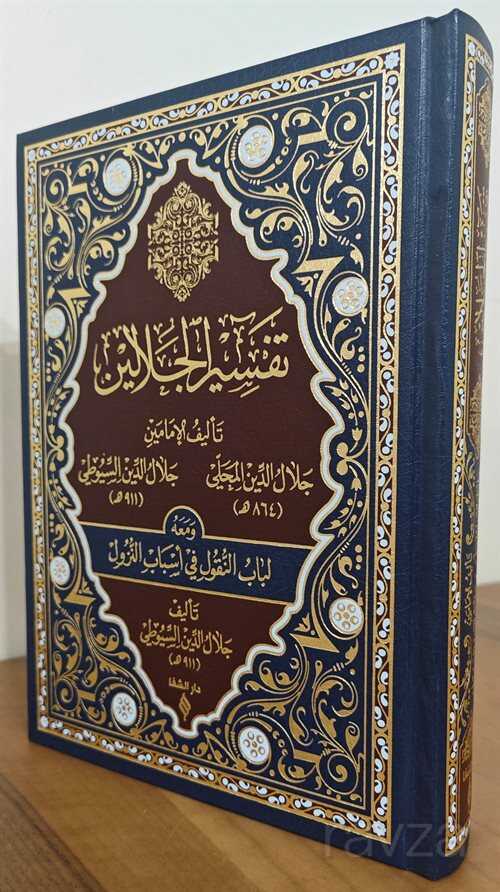 تفسير الجلالين
تأليف الإمامين
جلال الدين المحلي جلال الدين السيوطي
(٨٦٤ هـ) (٩١١ هـ)
ومعه
لباب النقول في أسباب النزول
تأليف
جلال الدين السيوطي
(٩١١ هـ)
دار الشفا
ravza